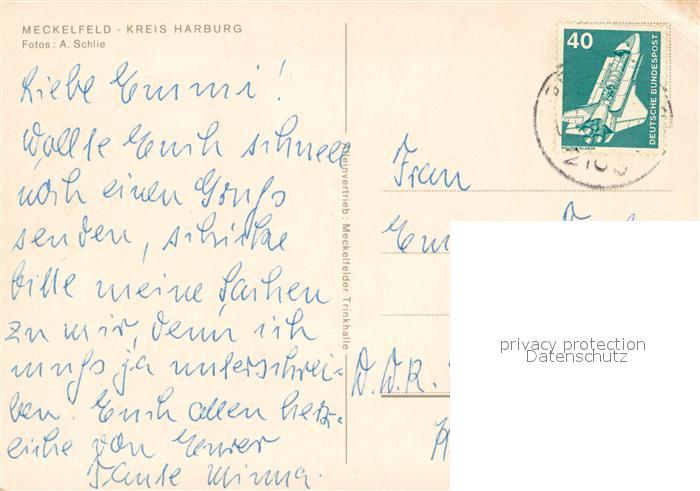 MECKELFELD - KREIS HARBURG
Fotos: A. Schlie
Liebe Emmi!
Wollte Euch schnell
noch einen Gruß
senden, schicke
bitte meine Sachen
zu mir, denn ich
muß ja unterschrei-
ben. Euch allen herz-
liche von Eurer
Tante Minna.
Alleinvertrieb: Meckelfelder Trinkhalle
40
DEUTSCHE BUNDESPOST
Frau
D.D.R.
privacy protection
Datenschutz